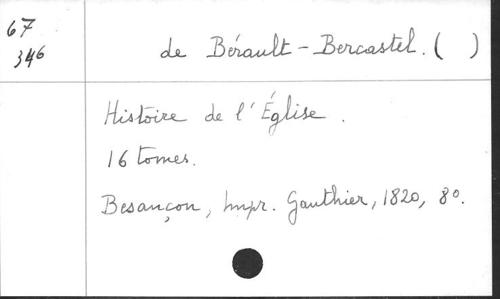 67
346
de Bérault-Bercastel. ( )
Histoire de l'Église.
16 tomes.
Besançon, Impr. Gauthier, 1820, 8o.